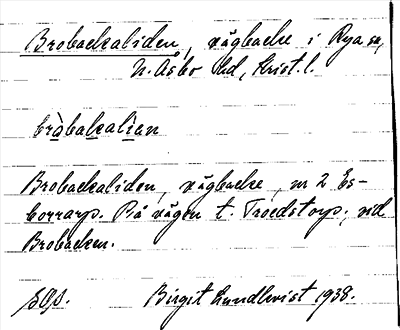 Brobackaliden, vägbacke i Rya sn,
N. Åsbo hd, Krist. l.
bròbakalían
Brobackaliden, vägbacke, nr 2 Es-
borrarp. På vägen t. Troedstorp, vid
Brobacken.
Birgit Lundkvist 1938.